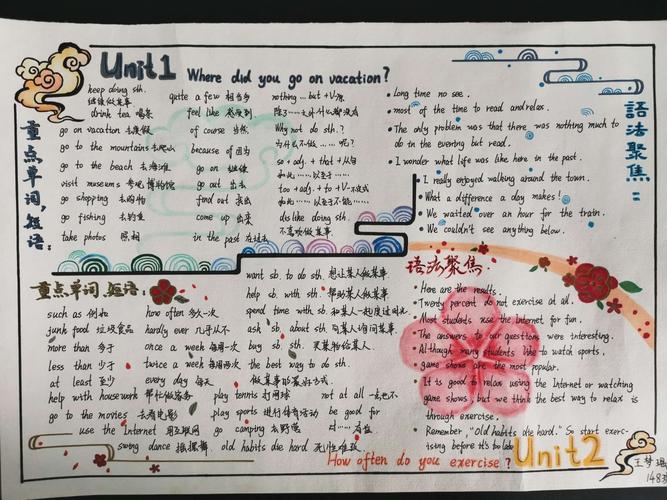 Unit1 Where did you go on vacation?
重点单词,短语:
keep doing sth.
继续做某事
drink tea 喝茶
go on vacation 去度假
go to the mountains 去爬山
go to the beach 去海滩
visit museums 参观博物馆
go shopping 去购物
go fishing 去钓鱼
take photos 照相
quite a few 相当多
feel like 感受到
of course 当然
because of 因为
go on 继续
go out 出去
find out 找出
come up 出来
in the past 在过去
nothing ... but + V-原
除了……之外什么都没有
Why not do sth.?
为什么不做……呢?
so + adj. + that + 从句
如此…以至于……
too + adj. + to + V-不定式
如此…以至于不能……
dislike doing sth.
不喜欢做某事
語法聚焦:
Long time no see.
most of the time to read and relax.
The only problem was that there was nothing much to
do in the evening but read.
I wonder what life was like here in the past.
I really enjoyed walking around the town.
What a difference a day makes!
We waited over an hour for the train.
We couldn't see anything below.
重点单词、短语:
such as 例如
junk food 垃圾食品
more than 多于
less than 少于
at least 至少
help with housework 帮忙做家务
go to the movies 去看电影
use the Internet 用互联网
swing dance 摇摆舞
how often 多久一次
hardly ever 几乎从不
once a week 每周一次
twice a week 每周两次
every day 每天
play tennis 打网球
play sports 进行体育活动
go camping 去野营
old habits die hard 积习难改
want sb. to do sth. 想让某人做某事
help sb. with sth. 帮助某人做某事
spend time with sb. 和某人一起度过时光
ask sb. about sth. 向某人询问某事
buy sb. sth. 买某物给某人
the best way to do sth.
做某事的最好方式
not at all 一点也不
be good for
对……有益
语法聚焦
Here are the results.
Twenty percent do not exercise at all.
Most students use the Internet for fun.
The answers to our questions were interesting.
Although many students like to watch sports,
game shows are the most popular.
It is good to relax using the Internet or watching
game shows but we think the best way to relax is
through exercise.
Remember, "Old habits die hard." So start exerc-
ising before it's too late
How often do you exercise? Unit2
王梦
1483